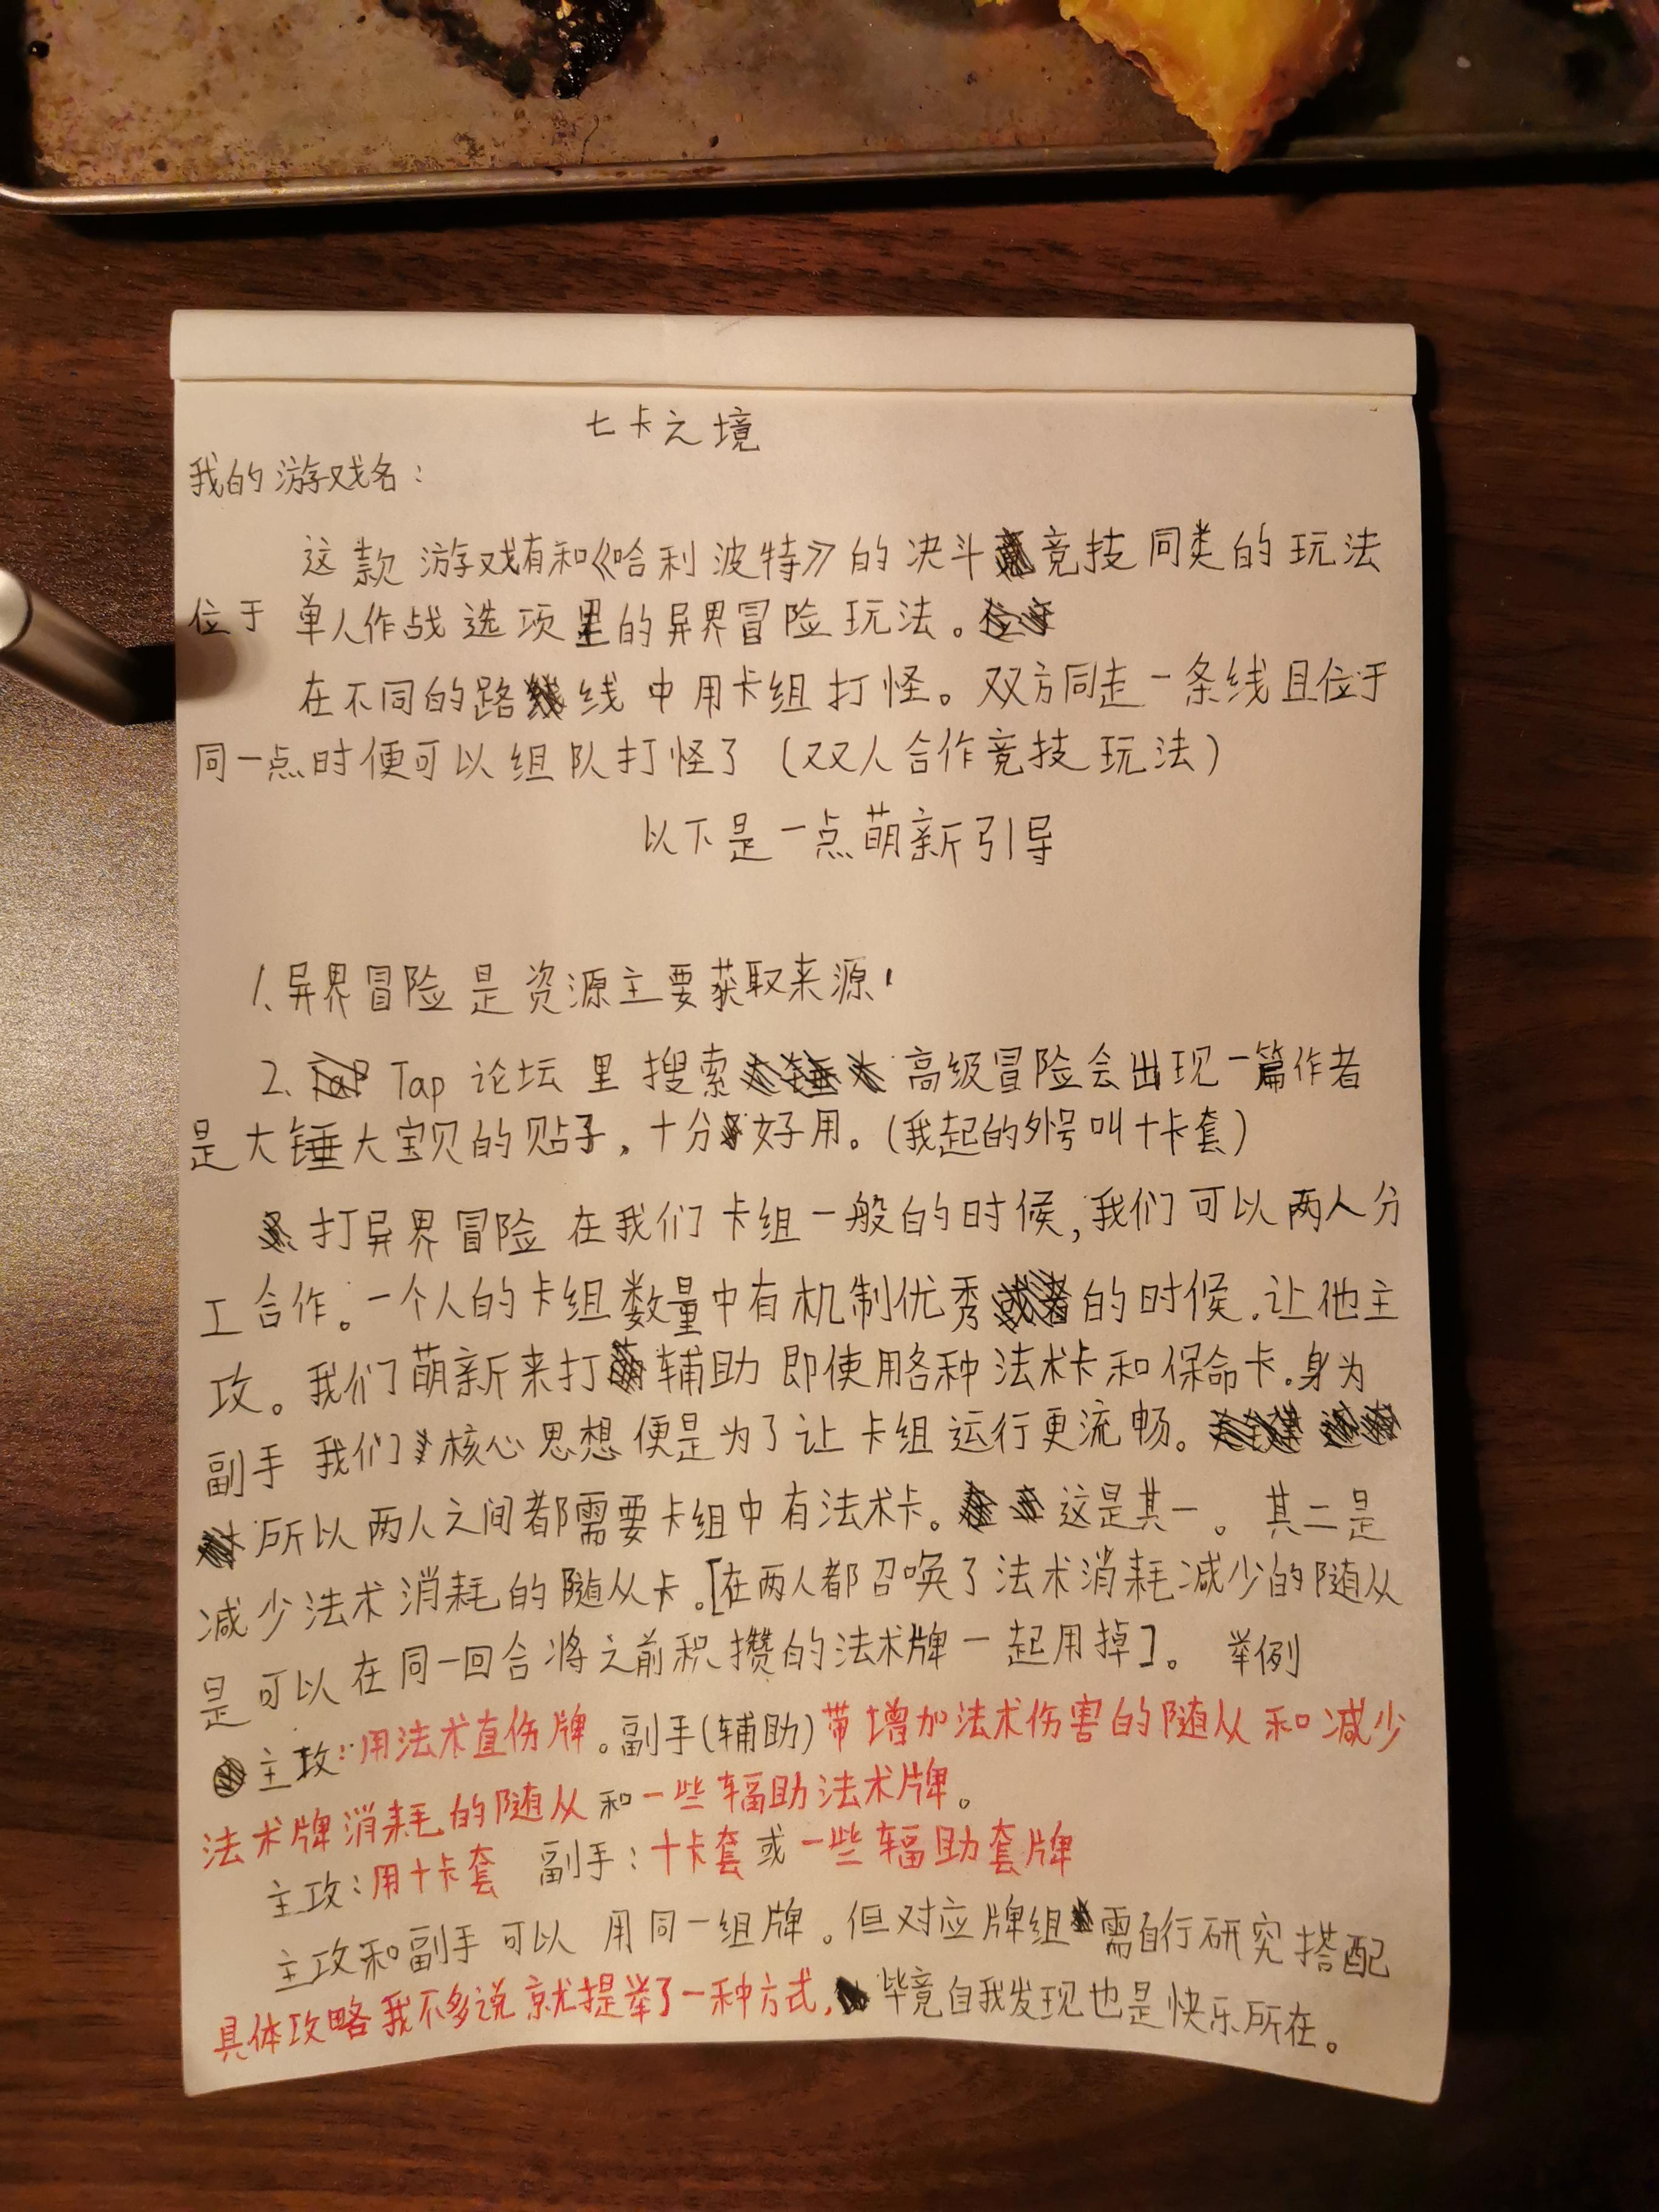 七卡之境
我的游戏名：
这款游戏有和《哈利波特》的决斗竞技同类的玩法
位于单人作战选项里的异界冒险玩法。
在不同的路线中用卡组打怪。双方同走一条线且位于
同一点时便可以组队打怪了（双人合作竞技玩法）
以下是一点萌新引导
1.异界冒险是资源主要获取来源！
2.Tap论坛里搜索高级冒险会出现一篇作者
是大锤大宝贝的贴子，十分好用。（我起的外号叫十卡套）
打异界冒险在我们卡组一般的时候，我们可以两人分
工合作。一个人的卡组数量中有机制优秀的时候.让他主
攻。我们萌新来打辅助即使用各种法术卡和保命卡.身为
副手我们核心思想便是为了让卡组运行更流畅。
所以两人之间都需要卡组中有法术卡。这是其一。其二是
减少法术消耗的随从卡。[在两人都召唤了法术消耗减少的随从
是可以在同一回合将之前积攒的法术牌一起用掉]。举例
主攻：用法术直伤牌。副手（辅助）带增加法术伤害的随从和减少
法术牌消耗的随从和一些辐助法术牌。
主攻：用十卡套 副手：十卡套或一些辐助套牌
主攻和副手可以用同一组牌。但对应牌组需自行研究搭配
具体攻略我不多说就提举了一种方式，毕竟自我发现也是快乐所在。